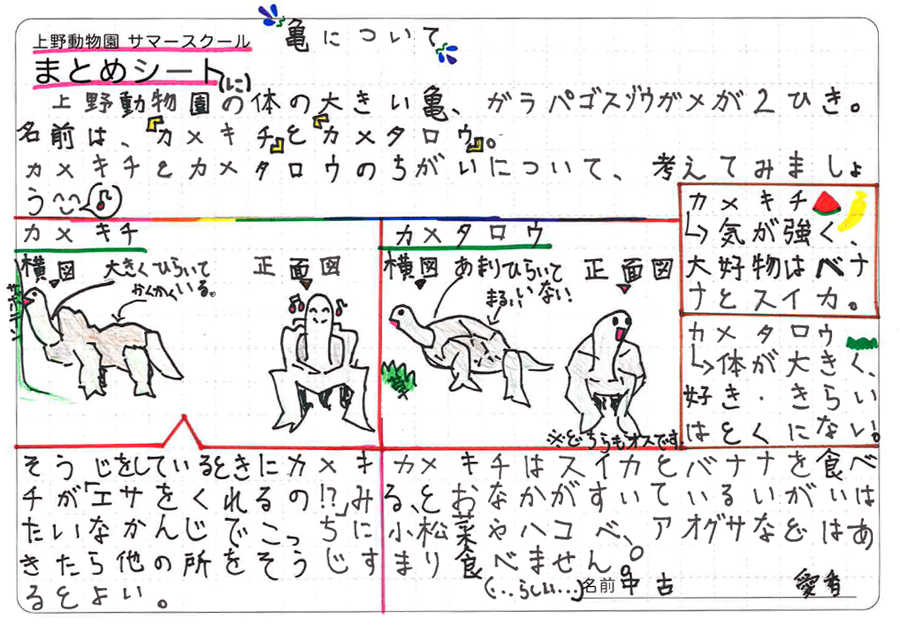 亀について
上野動物園 サマースクール
まとめシート
(に)
上野動物園の体の大きい亀、ガラパゴスゾウガメが2ひき。
名前は、『カメキチ』と『カメタロウ』。
カメキチとカメタロウのちがいについて、考えてみましょ
う
カメキチ
横図
大きくひらいて
かくかくいる。
正面図
カメタロウ
横図
あまりひらいて
まるい いない!
正面図
※どちらもオスです。
カメキチ
↳気が強く、
大好物はバナ
ナとスイカ。
カメタロウ
↳体が大きく、
好き・きらい
はとくにない。
そうじをしているときにカメキ
チが「エサをくれるの!?」み
たいなかんじでこっちに
きたら他の所をそうじす
るとよい。
カメキチはスイカとバナナを食べ
る、とおなかがすいているいがいは
小松菜やハコベ、アオグサなどはあ
まり食べません。
(…らしい…)
名前 中古 愛育